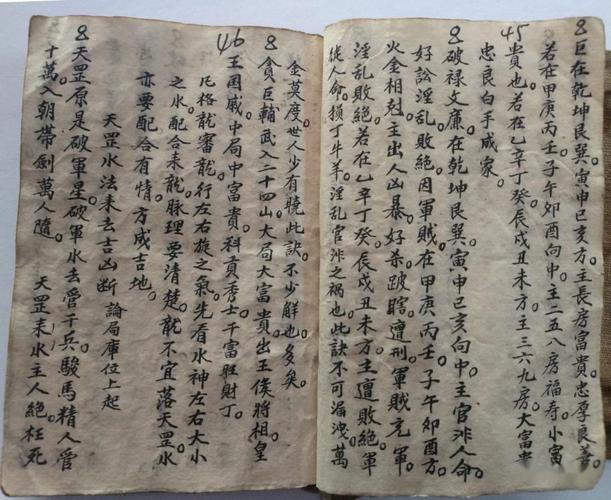 8巨在乾坤艮巽。寅申巳亥方。主長房富貴。忠厚良善。
若在甲庚丙壬子午卯酉向中。主二五八房福寿。小富
45
貴也。若在乙辛丁癸。辰戌丑未方。主三六九房大富貴
忠良白手成家。
8破禄文廉。在乾坤艮巽。寅申巳亥向中。主官非人命。
好訟淫乱。敗絕。因軍賊。在甲庚丙壬。子午卯酉方。
火金相尅。主出人凶暴。好杀跛瞎。遭刑。軍賊充軍。
淫乱敗絕。若在乙辛丁癸。辰戌丑未方。主遭敗絕。軍
徒人命。損丁牛羊。淫乱官非之禍也。此訣不可漏洩。萬
金莫度。世人少有曉此訣。不少觧也多矣。
8貪巨輔武入二十四山大局大富。貴出王侯將相。皇
46
王国戚。中局中富貴。科貢秀士。千富旺財丁。
凡格龍審龍行左右旋之氣。先看水神左右大小
之水。配合来龍脉理要清楚。龍不宜落天罡水
亦要配合有情。方成吉地。
天罡水法来去吉凶断 論局庫位上起
8天罡原是破軍星。破軍水去管千兵。駿馬精人管
十萬。入朝帶劍萬人隨。 天罡来水主人絕。枉死